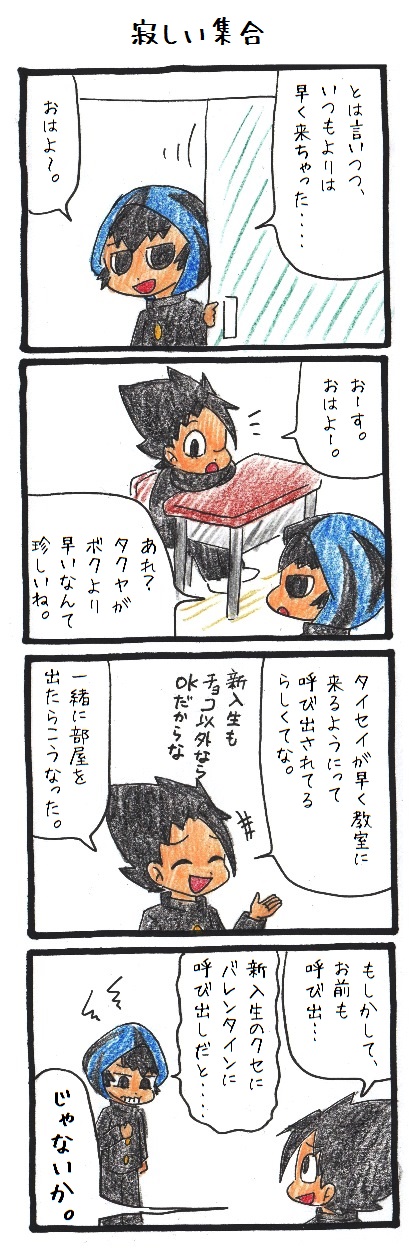 寂しい集合
とは言いつつ、
いつもよりは
早く来ちゃった・・・・
おはよ〜。
お〜す。
おはよ〜。
あれ？
タクヤが
ボクより
早いなんて
珍しいね。
タイセイが早く教室に
来るようにって
呼び出されてる
らしくてな。
新入生も
チョコ以外なら
OKだからな
一緒に部屋を
出たらこうなった。
もしかして、
お前も
呼び出…
新入生のクセに
バレンタインに
呼び出しだと・・・・
じゃないか。